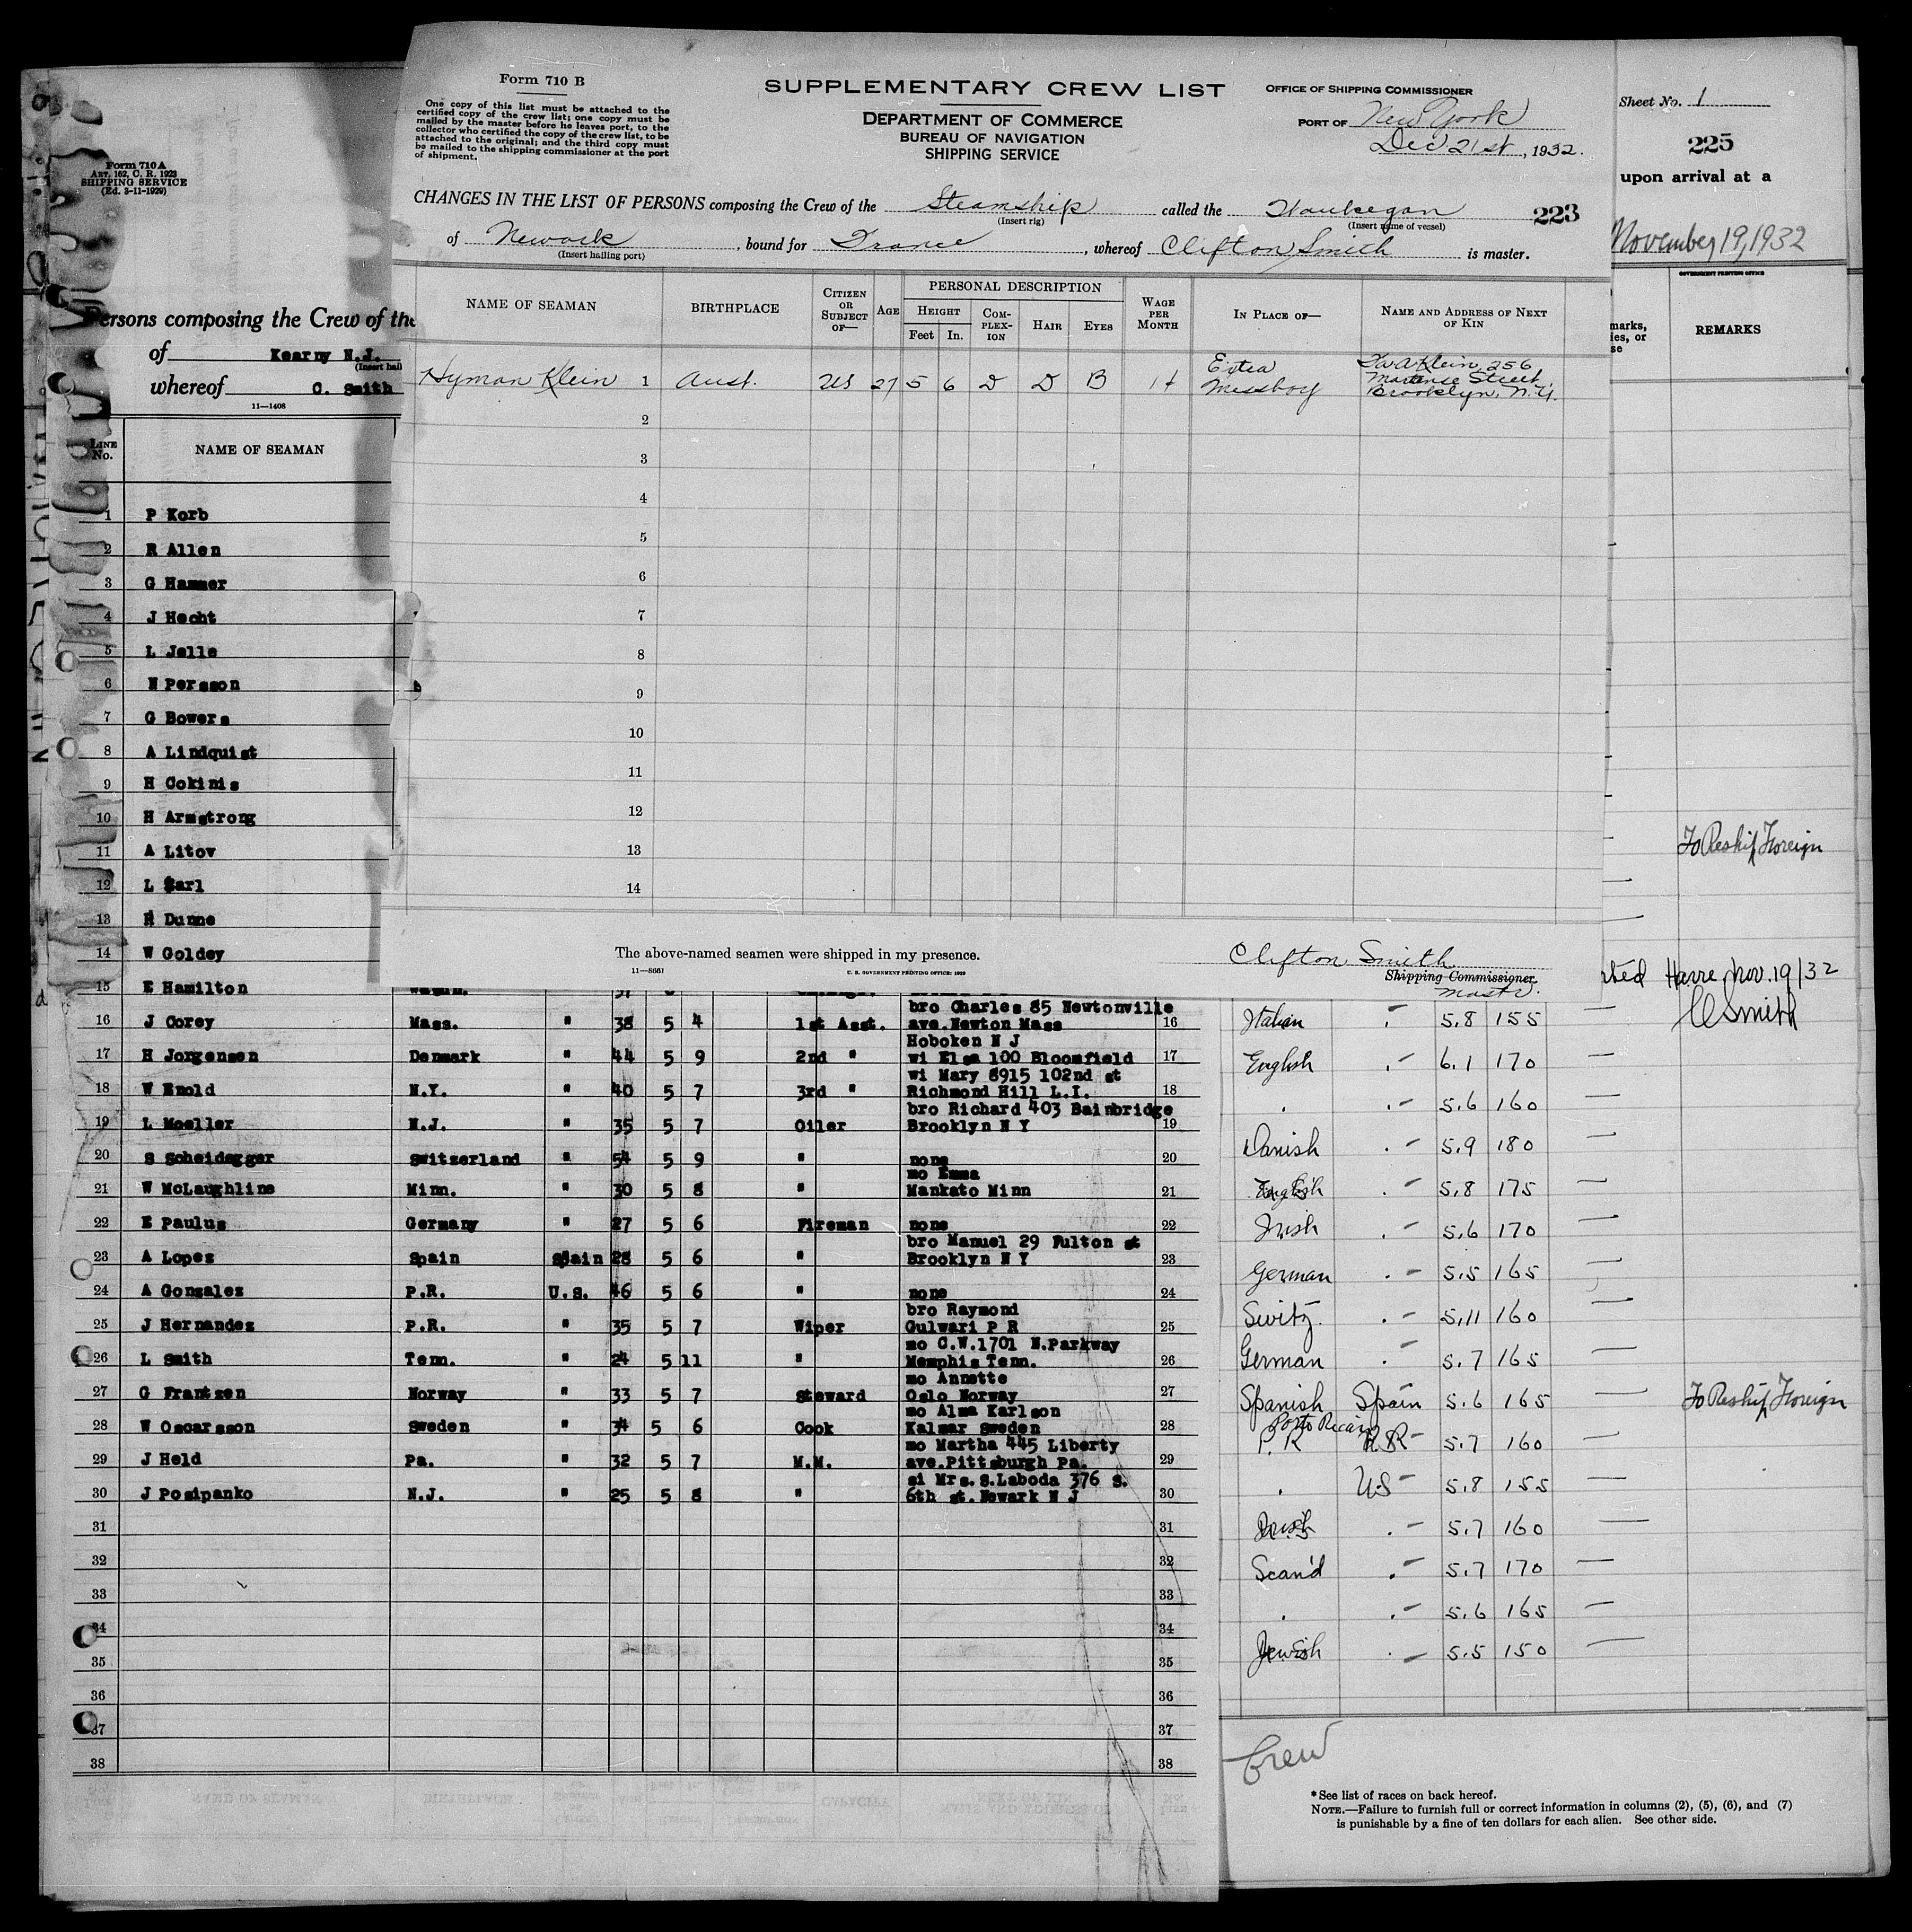 Form 710 B
One copy of this list must be attached to the
certified copy of the crew list; one copy must be
mailed by the master before he leaves port, to the
collector who certified the copy of the crew list, to be
attached to the original; and the third copy must
be mailed to the shipping commissioner at the port
of shipment.
SUPPLEMENTARY CREW LIST
DEPARTMENT OF COMMERCE
BUREAU OF NAVIGATION
SHIPPING SERVICE
OFFICE OF SHIPPING COMMISSIONER
PORT OF New York
Dec 21st, 1932.
CHANGES IN THE LIST OF PERSONS composing the Crew of the Steamship called the Waukegan 223
(Insert rig) (Insert name of vessel)
of Newark, bound for France, whereof Clifton Smith is master.
(Insert hailing port)
NAME OF SEAMAN BIRTHPLACE CITIZEN OR SUBJECT OF— AGE PERSONAL DESCRIPTION HEIGHT Feet In. COMPLEXION HAIR EYES WAGE PER MONTH IN PLACE OF— NAME AND ADDRESS OF NEXT OF KIN
Hyman Klein 1 Aust. US 27 5 6 D D B 1 Extra Messboy Klein 256 Street, Brooklyn, N.Y.
2
3
4
5
6
7
8
9
10
11
12
13
14
The above-named seamen were shipped in my presence.
11—8661 U. S. GOVERNMENT PRINTING OFFICE: 1929
Clifton Smith
Shipping Commissioner
Master.
Form 710 A
ART. 162, C. R. 1923
SHIPPING SERVICE
(Ed. 3-11-1929)
Persons composing the Crew of the
of Kearny N.J.
(Insert hail
whereof C. Smith
11—1408
LINE No. NAME OF SEAMAN
1 P Korb
2 R Allen
3 G Hammer
4 J Hecht
5 L Jelle
6 N Persson
7 G Bowers
8 A Lindquist
9 H Cokinis
10 H Armstrong
11 A Litov
12 L Earl
13 H Dunne
14 W Goldey
15 E Hamilton
16 J Corey Mass. " 38 5 4 1st Asst. bro Charles 85 Newtonville ave. Newton Mass 16
17 H Jorgensen Denmark " 44 5 9 2nd " Hoboken N J wi Elsa 100 Bloomfield 17
18 W Enold N.Y. " 40 5 7 3rd " wi Mary 8915 102nd st Richmond Hill L.I. 18
19 L Moeller N.J. " 35 5 7 Oiler bro Richard 403 Bainbridge Brooklyn N Y 19
20 S Scheidegger Switzerland " 54 5 9 " none 20
21 W McLaughline Minn. " 30 5 8 " mo Emma Mankato Minn 21
22 E Paulus Germany " 27 5 6 Fireman none 22
23 A Lopez Spain Spain 28 5 6 " bro Manuel 29 Fulton st Brooklyn N Y 23
24 A Gonzalez P.R. U.S. 46 5 6 " none 24
25 J Hernandez P.R. " 35 5 7 Wiper bro Raymond Gulwari P R 25
26 L Smith Tenn. " 24 5 11 " mo C.W.1701 N.Parkway Memphis Tenn. 26
27 G Frantzen Norway " 33 5 7 Steward mo Annette Oslo Norway 27
28 W Oscarsson Sweden " 34 5 6 Cook mo Alma Karlson Kalmar Sweden 28
29 J Held Pa. " 32 5 7 M.M. mo Martha 445 Liberty ave. Pittsburgh Pa. 29
30 J Posipanko N.J. " 25 5 8 " si Mrs. S.Laboda 376 S. 6th st. Newark N J 30
31 31
32 32
33 33
34 34
35 35
36 36
37 37
38 38
Sheet No. 1
225
upon arrival at a
November 19, 1932
GOVERNMENT PRINTING OFFICE
REMARKS
To Reship Foreign
Havre, Nov. 19/32
C Smith
Italian " 5.8 155 —
English " 6.1 170 —
" " 5.6 160 —
Danish " 5.9 180 —
English " 5.8 175 —
Irish " 5.6 170 —
German " 5.5 165 —
Switz. " 5.11 160 —
German " 5.7 165 —
Spanish Spain 5.6 165 — To Reship Foreign
Porto Rican
P. R 5.7 160 —
" U.S 5.8 155 —
Irish " 5.7 160 —
Scan'd " 5.7 170 —
" " 5.6 165 —
Jewish " 5.5 150 —
Crew
*See list of races on back hereof.
NOTE.—Failure to furnish full or correct information in columns (2), (5), (6), and (7)
is punishable by a fine of ten dollars for each alien. See other side.